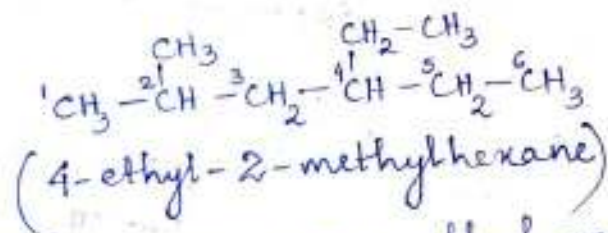 CH3 CH2-CH3
¹CH3 - ²CH - ³CH2 - ⁴CH - ⁵CH2 - ⁶CH3
(4-ethyl-2-methylhexane)